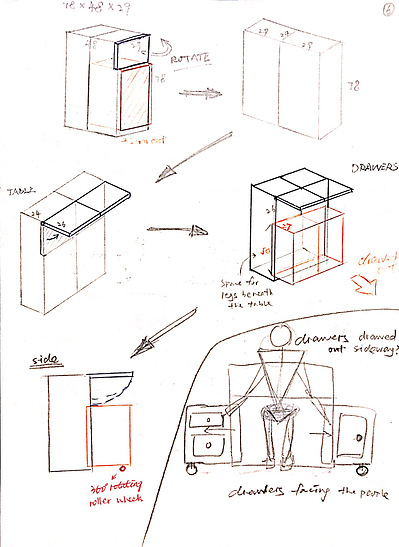 78 x 48 x 29
6
48
29
ROTATE
78
29 29 29
78
TABLE
24
26
DRAWERS
26
27
50
drawed
out
Space for
legs beneath
the table
side
360° rotating
roller wheel
drawers drawed
out sideway?
drawers facing the people